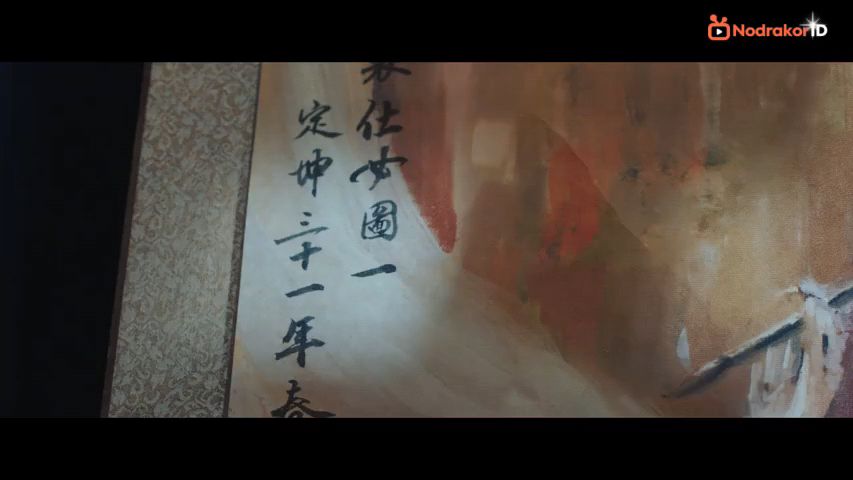 NodrakorID
裳仕女圖一
定坤三十一年春